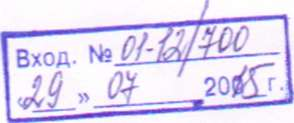 Вход. № 01-12/700
«29» 07 2015 г.